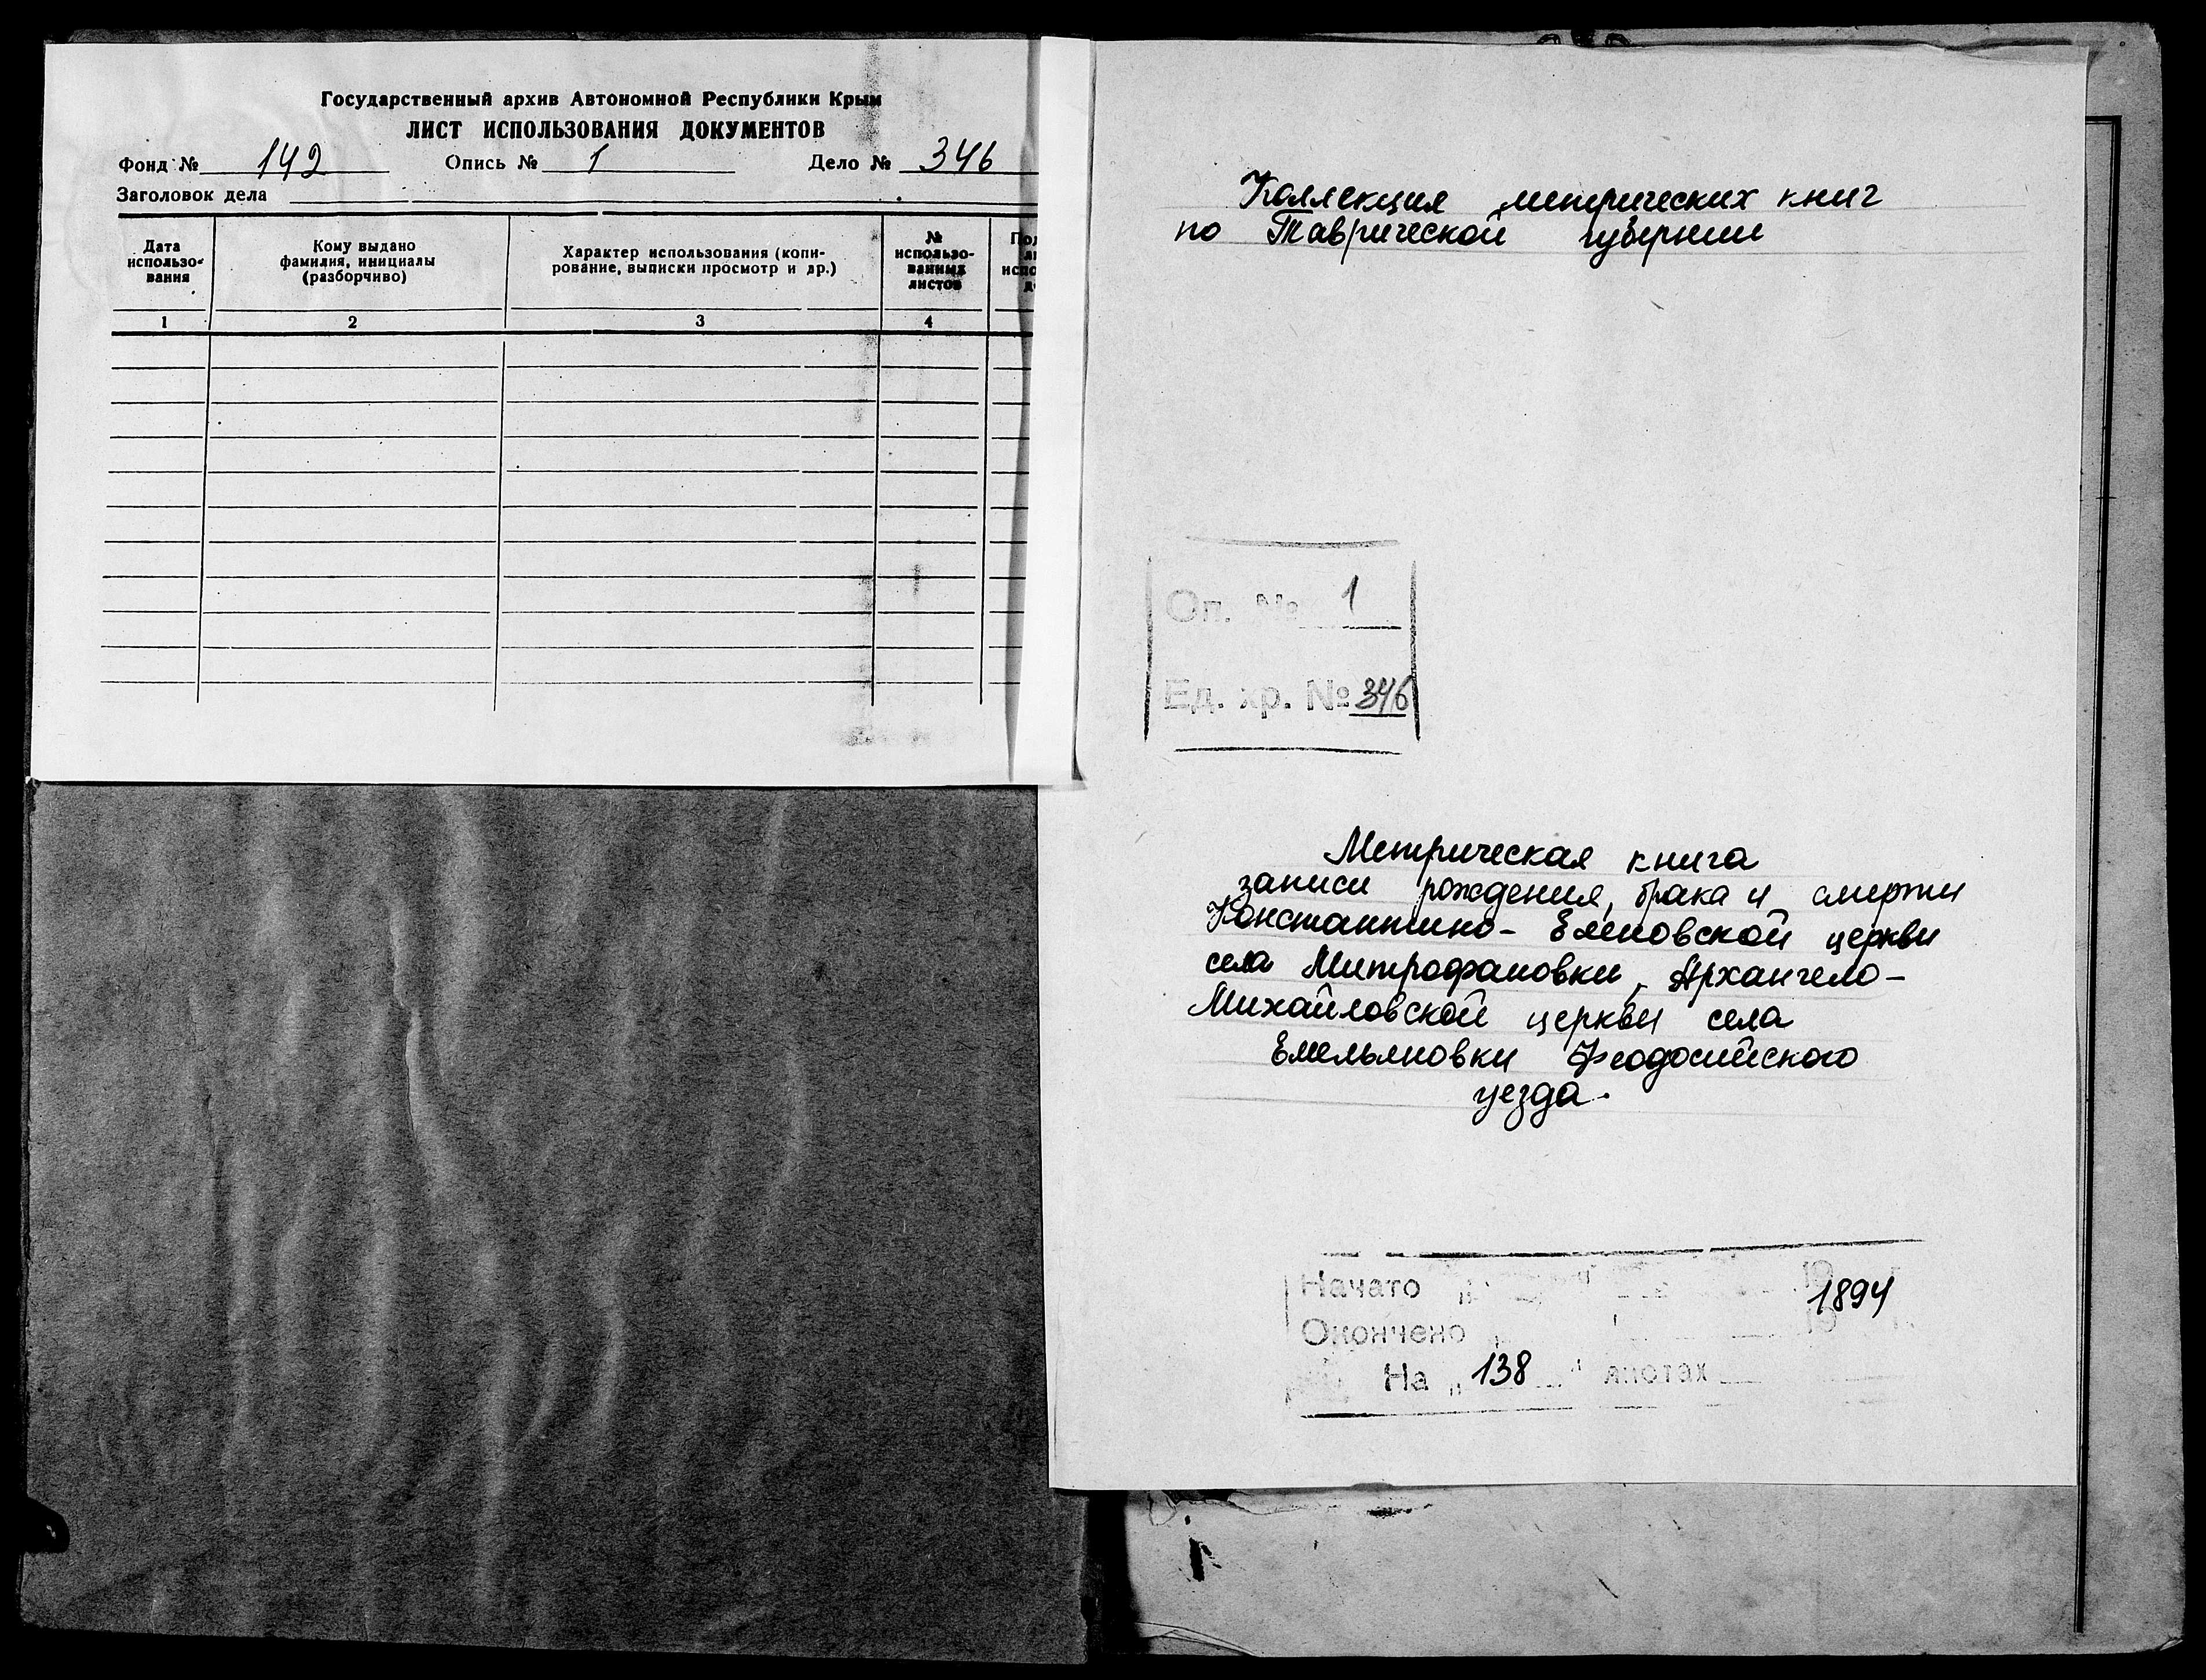 Государственный архив Автономной Республики Крым
ЛИСТ ИСПОЛЬЗОВАНИЯ ДОКУМЕНТОВ
Фонд № 142 Опись № 1 Дело № 346
Заголовок дела
Дата использо-вания
Кому выдано
фамилия, инициалы
(разборчиво)
Характер использования (копи-
рование, выписки просмотр и др.)
№
использо-
ванных
листов
1 2 3 4
Коллекция метрических книг
по Таврической губернии
Оп. № 1
Ед. хр. № 346
Метрическая книга
записи рождения, брака и смерти
Константино-Еленовской церкви
села Митрофановки, Архангело-
Михайловской церкви села
Емельяновки Феодосийского
уезда.
Начато 1894
Окончено
На "138" листах